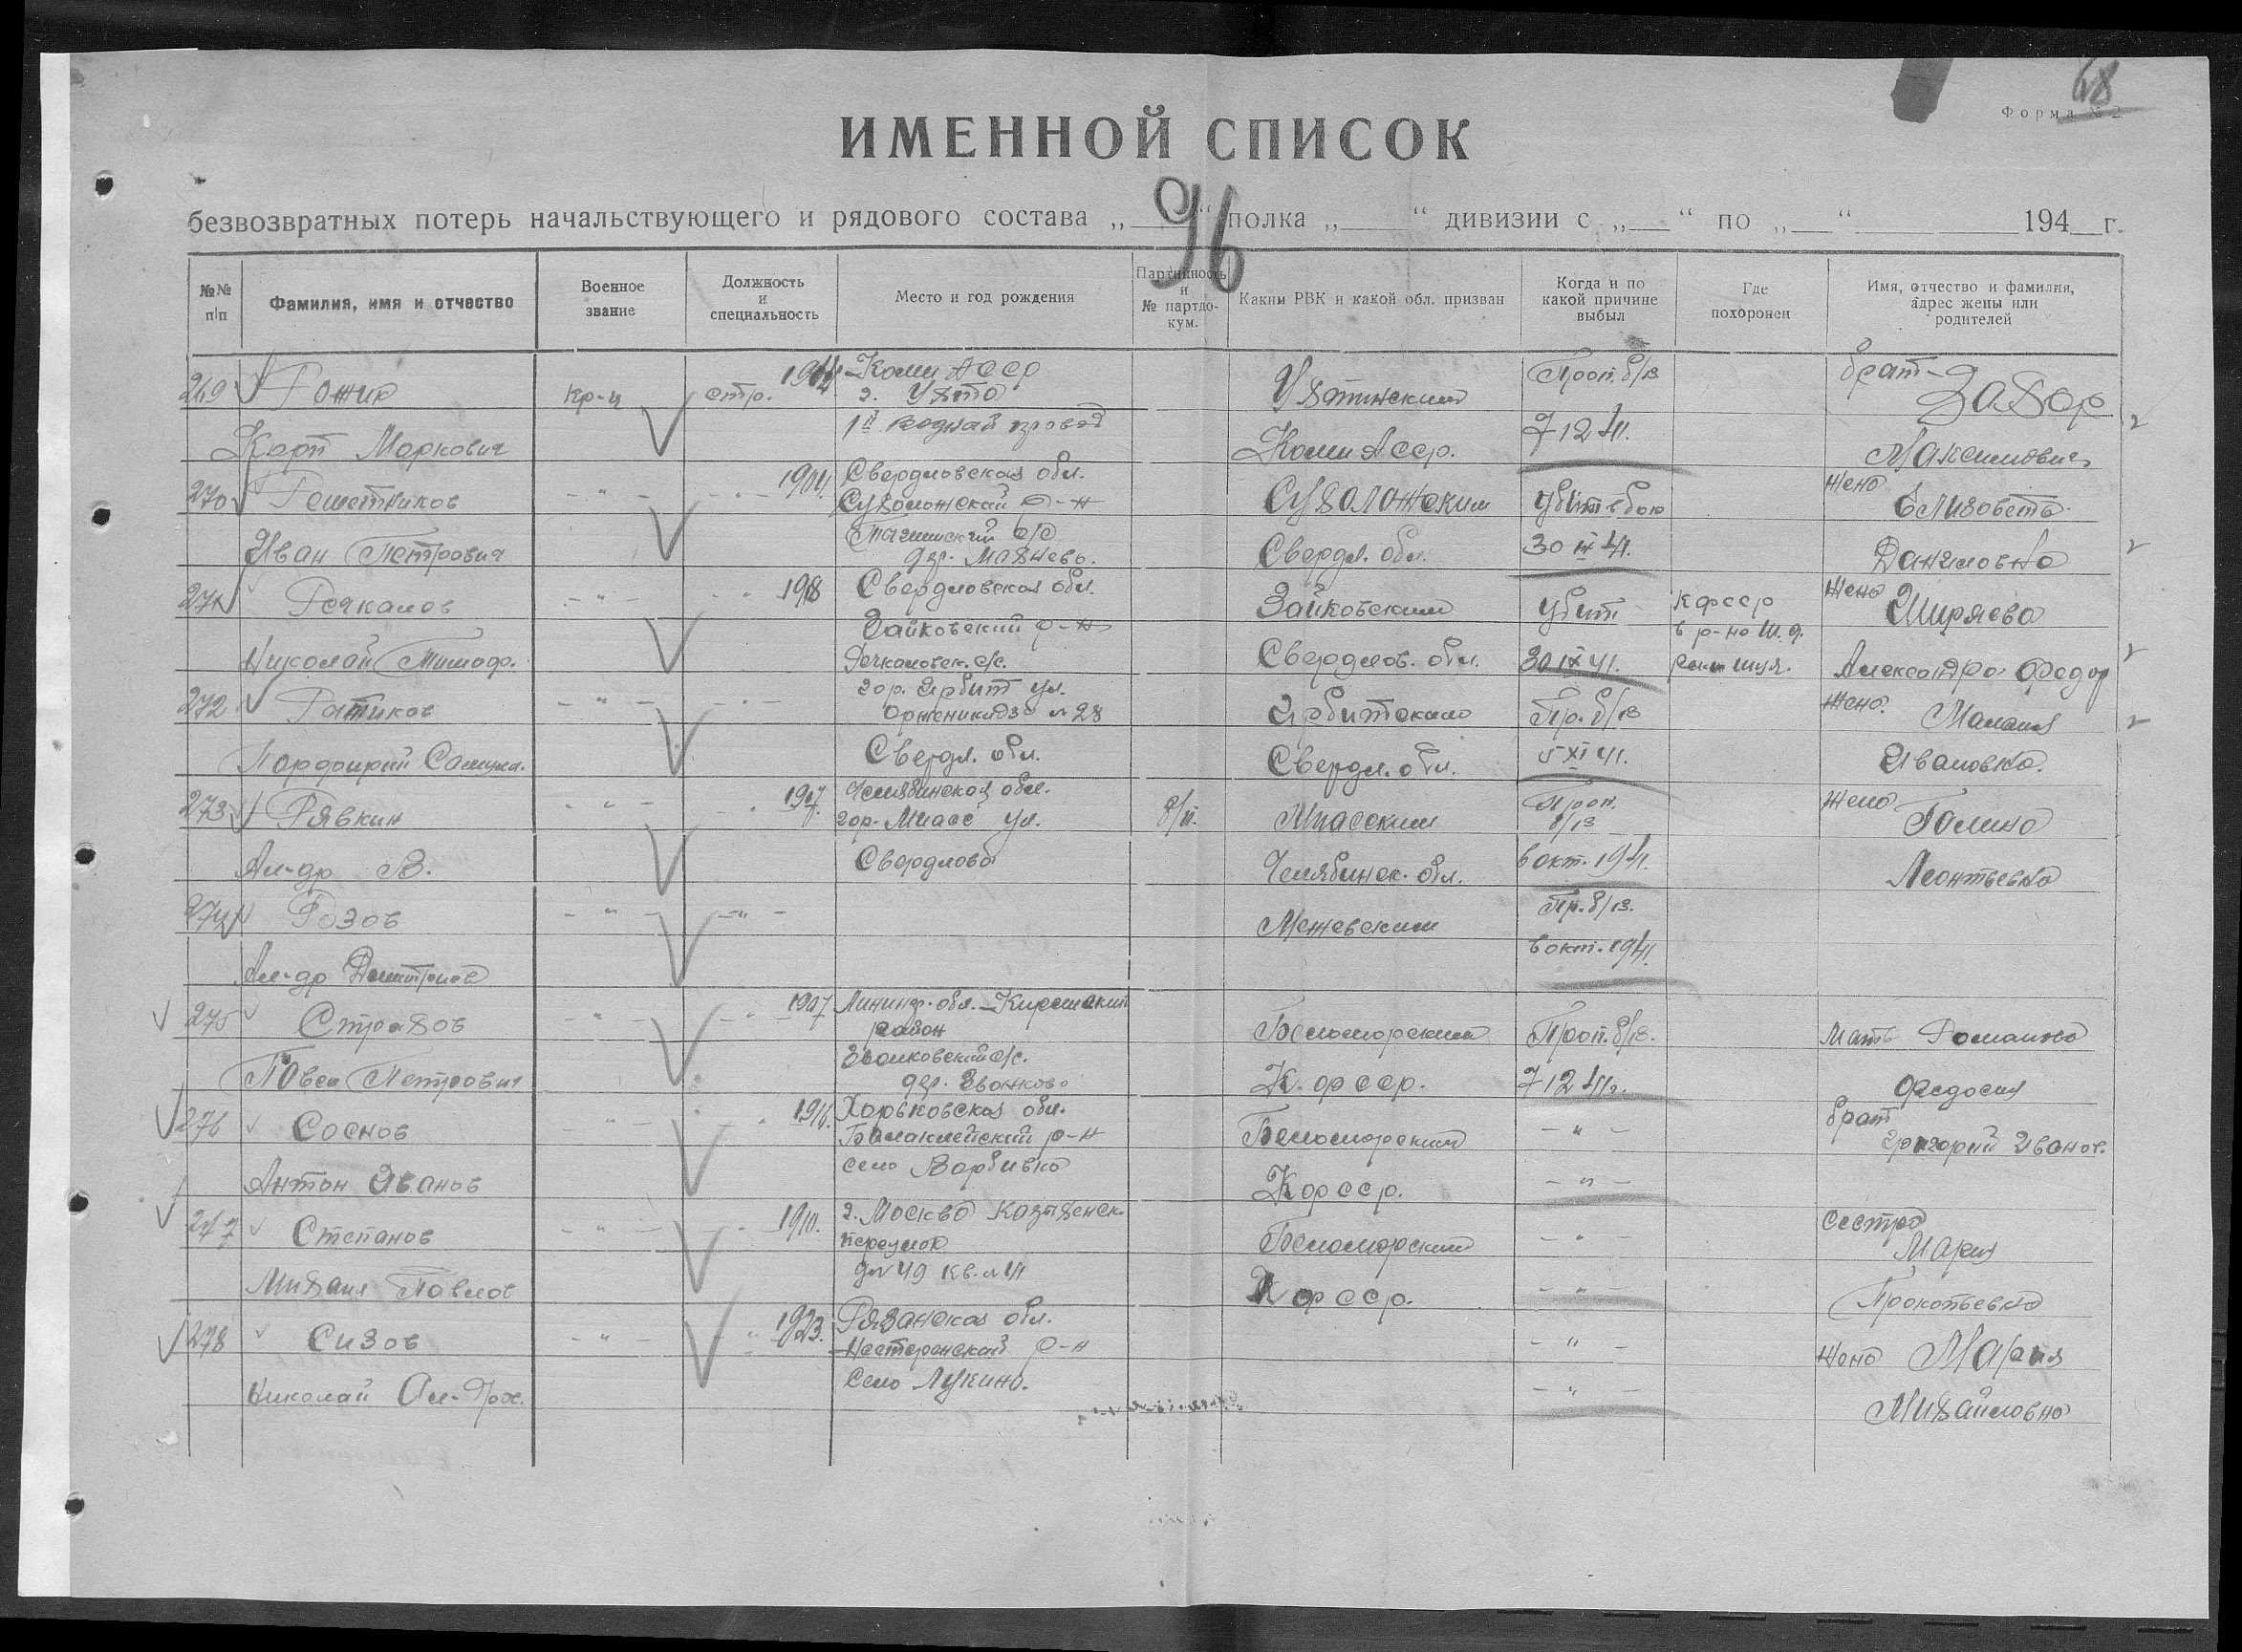 68
Форма № 2
ИМЕННОЙ СПИСОК
безвозвратных потерь начальствующего и рядового состава „ “ полка „ “ дивизии с „ “ по „ “ 194 г.
96
№№ п|п
Фамилия, имя и отчество
Военное звание
Должность и специальность
Место и год рождения
Партийность и № партдокум.
Каким РВК и какой обл. призван
Когда и по какой причине выбыл
Где похоронен
Имя, отчество и фамилия, адрес жены или родителей
269 Рожик кр-ц стр. Коми АССР
г. Ухта Ухтинским Проп. б/в брат-
Карп Маркович Коми АССР. 7 12 41. Максимович
270 Решетников 1904. Свердловская обл.
Сухоложский р-н Сухоложским убит в бою жена Елизавета
Иван Петрович Свердл. обл. 30 IX 41. Даниловна
дер. Махнево.
271 Речкалов 1918 Свердловская обл.
Зайковский р-н Зайковским убит КФССР жена Ширяева
в р-не ш. д.
Николай Тимоф. Речкаловск. с/с. Свердлов. обл. 30 IX 41. Александра Федор
272 Ратиков гор. Ирбит ул.
Орженикидзе № 28 Ирбитским Пр. б/в жена Малания
Парфирий Самуил. Свердл. обл. Свердл. обл. 5 XI 41. Ивановна.
273 Рявкин 1917. Челябинская обл.
гор. Миасс ул. б/п. Миасским Проп. б/в жена Галина
Ал-др В. Свердлова Челябинск. обл. в окт. 1941. Леонтьевна
274 Розов Межевским Пр. б/в.
Ал-др Дмитриев в окт. 1941.
275 Страхов 1907 Ленингр. обл. Киришский
район Беломорским Проп. б/в. мать Романова
Павел Петрович К. ф ССР. 7 12 41г. Федосия
дер. Званково
276 Соснов 1916. Харьковская обл.
Балаклейский р-н Беломорским - " - брат Григорий Иванов.
Антон Иванов село Вербивка К ф ССР. - " -
277 Степанов 1910. г. Москва
переулок Беломорским - " - сестра Мария
Михаил Павлов д № 49 кв. № 41 К ф ССР. - " - Прокопьевна
278 Сизов 1923. Рязанская обл.
р-н - " - жена Мария
Николай Ал-дров. село Лукино. - " - Михайловна